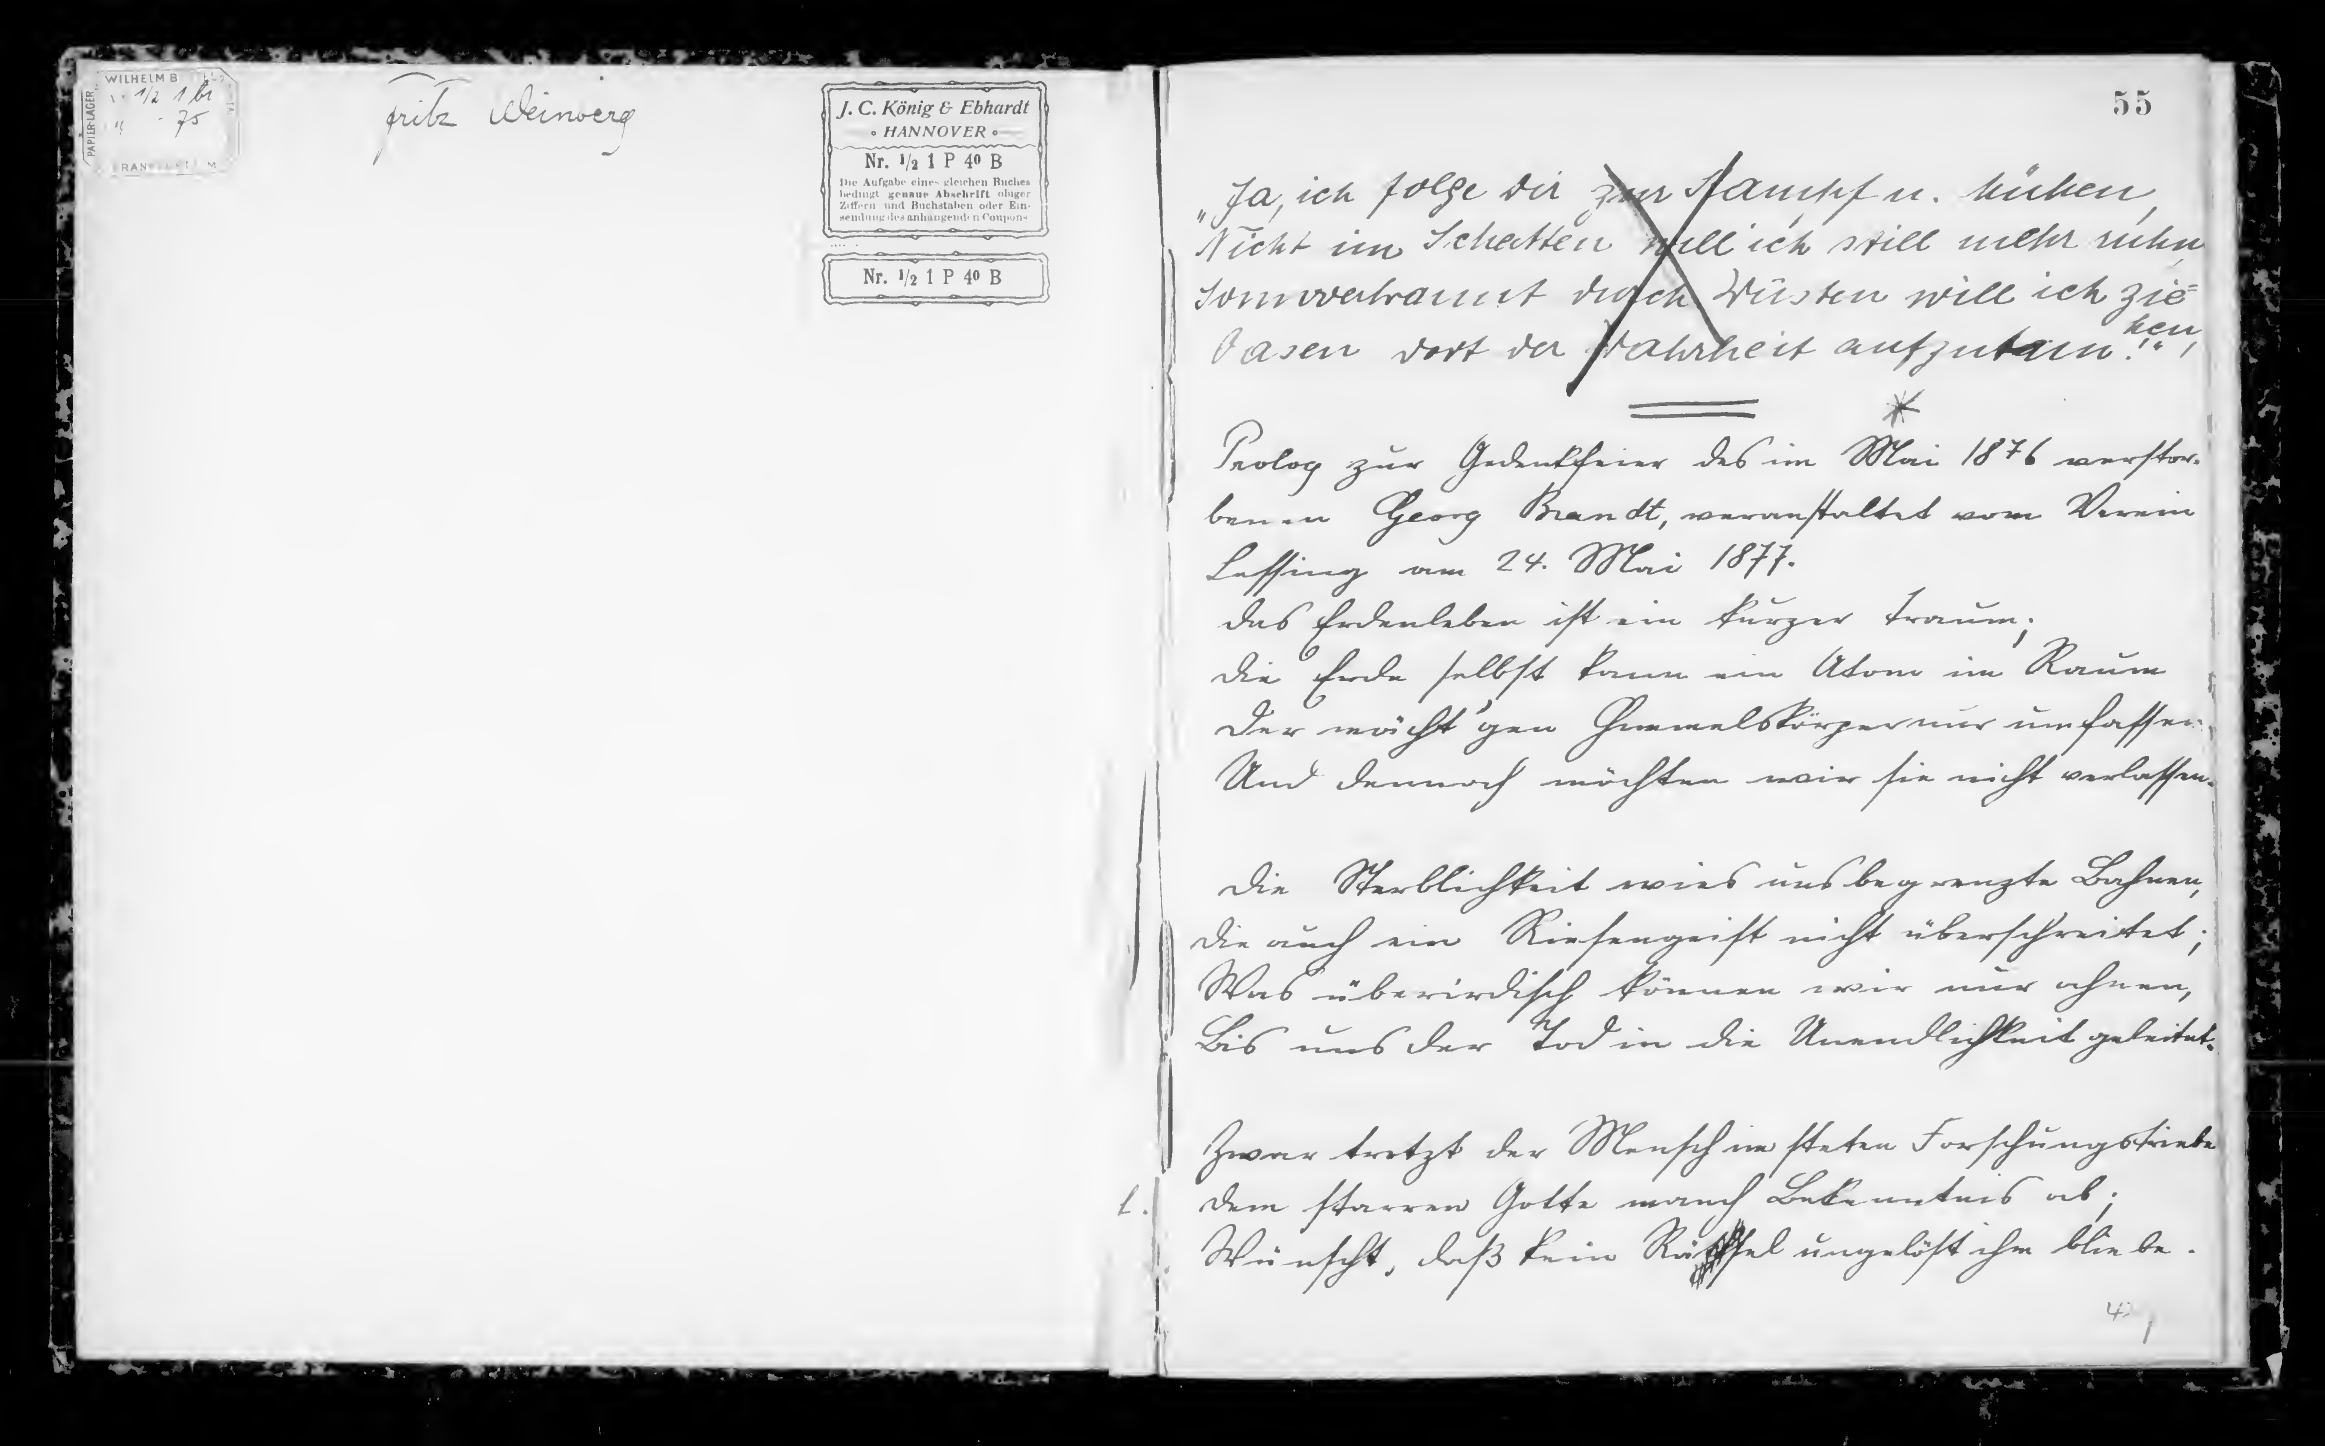 WILHELM B
PAPIER-LAGER
1/2 1 br
" - 75
FRANKFURT A. M.
Fritz Weinberg
J. C. König & Ebhardt
• HANNOVER •
Nr. 1/2 1 P 40 B
Die Aufgabe eines gleichen Buches
bedingt genaue Abschrift obiger
Ziffern und Buchstaben oder Ein-
sendung des anhängenden Coupons
Nr. 1/2 1 P 40 B
55
„Ja, ich folge dir zur Kampf u. Mühen,
Nicht im Schatten will ich still mehr ruhn,
Sonnverbrannt durch Wüsten will ich zie=
hen,
Oasen dort der Wahrheit aufzutun!“
*
Prolog zur Gedenkfeier des im Mai 1876 verstor-
benen Georg Brandt, veranstaltet vom Verein
Lessing am 24. Mai 1877.
Das Erdenleben ist ein kurzer Traum;
Die Erde selbst kann ein Atom im Raum
Der mächt'gen Himmelskörper nur umfassen
Und dennoch möchten wir sie nicht verlassen.
Die Sterblichkeit wies uns begrenzte Bahnen,
Die auch ein Riesengeist nicht überschreitet;
Was überirdisch können wir nur ahnen,
Bis uns der Tod in die Unendlichkeit geleitet.
Zwar trotzt der Mensch im steten Forschungstriebe
l.
Dem starren Gotte manch Bekenntnis ab;
Wünscht, daß kein Rätsel ungelöst ihm bliebe.
4